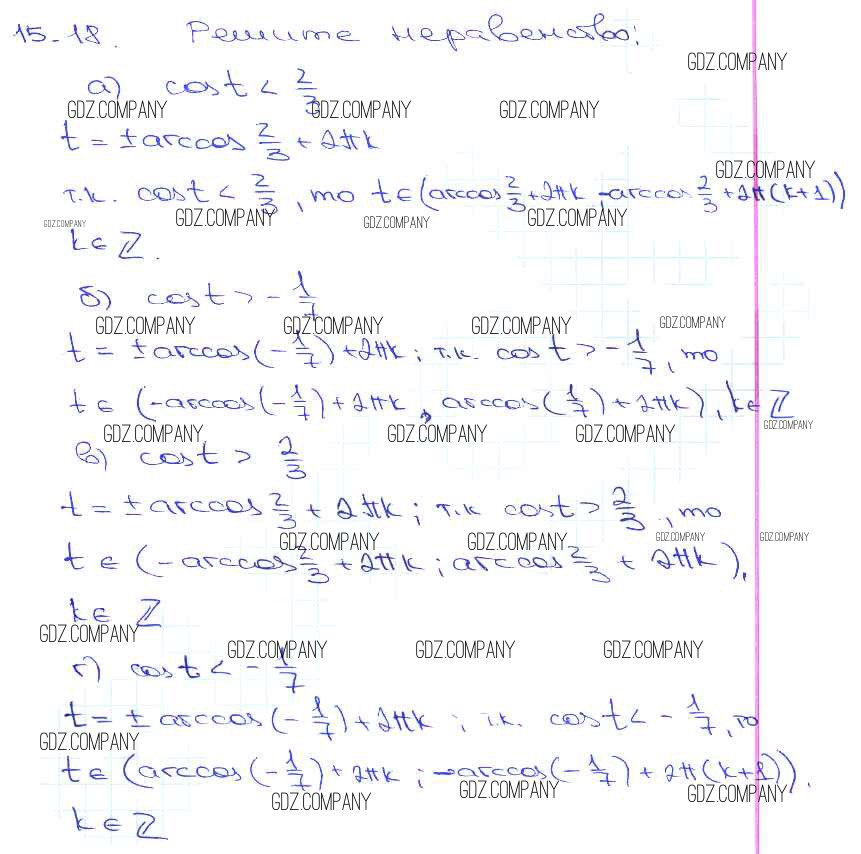 15-18. Решите неравенство:
GDZ.COMPANY
а) cost < 2/3
GDZ.COMPANY GDZ.COMPANY GDZ.COMPANY
t = ± arccos 2/3 + 2πk
GDZ.COMPANY
т.к. cost < 2/3, то t ∈ (arccos 2/3 + 2πk; -arccos 2/3 + 2π(k+1))
GDZ.COMPANY GDZ.COMPANY GDZ.COMPANY GDZ.COMPANY
k ∈ ℤ.
б) cost > - 1/7
GDZ.COMPANY GDZ.COMPANY GDZ.COMPANY GDZ.COMPANY
t = ± arccos(-1/7) + 2πk; т.к. cost > - 1/7, то
t ∈ (-arccos(-1/7) + 2πk, arccos(1/7) + 2πk), k ∈ ℤ
GDZ.COMPANY GDZ.COMPANY GDZ.COMPANY GDZ.COMPANY
в) cost > 2/3
t = ± arccos 2/3 + 2πk; т.к cost > 2/3, то
GDZ.COMPANY GDZ.COMPANY GDZ.COMPANY GDZ.COMPANY
t ∈ (-arccos 2/3 + 2πk; arccos 2/3 + 2πk),
k ∈ ℤ
GDZ.COMPANY GDZ.COMPANY GDZ.COMPANY GDZ.COMPANY
г) cost < - 1/7
t = ± arccos(-1/7) + 2πk; т.к. cost < - 1/7, то
GDZ.COMPANY
t ∈ (arccos(-1/7) + 2πk; -arccos(-1/7) + 2π(k+1)).
GDZ.COMPANY GDZ.COMPANY GDZ.COMPANY
k ∈ ℤ